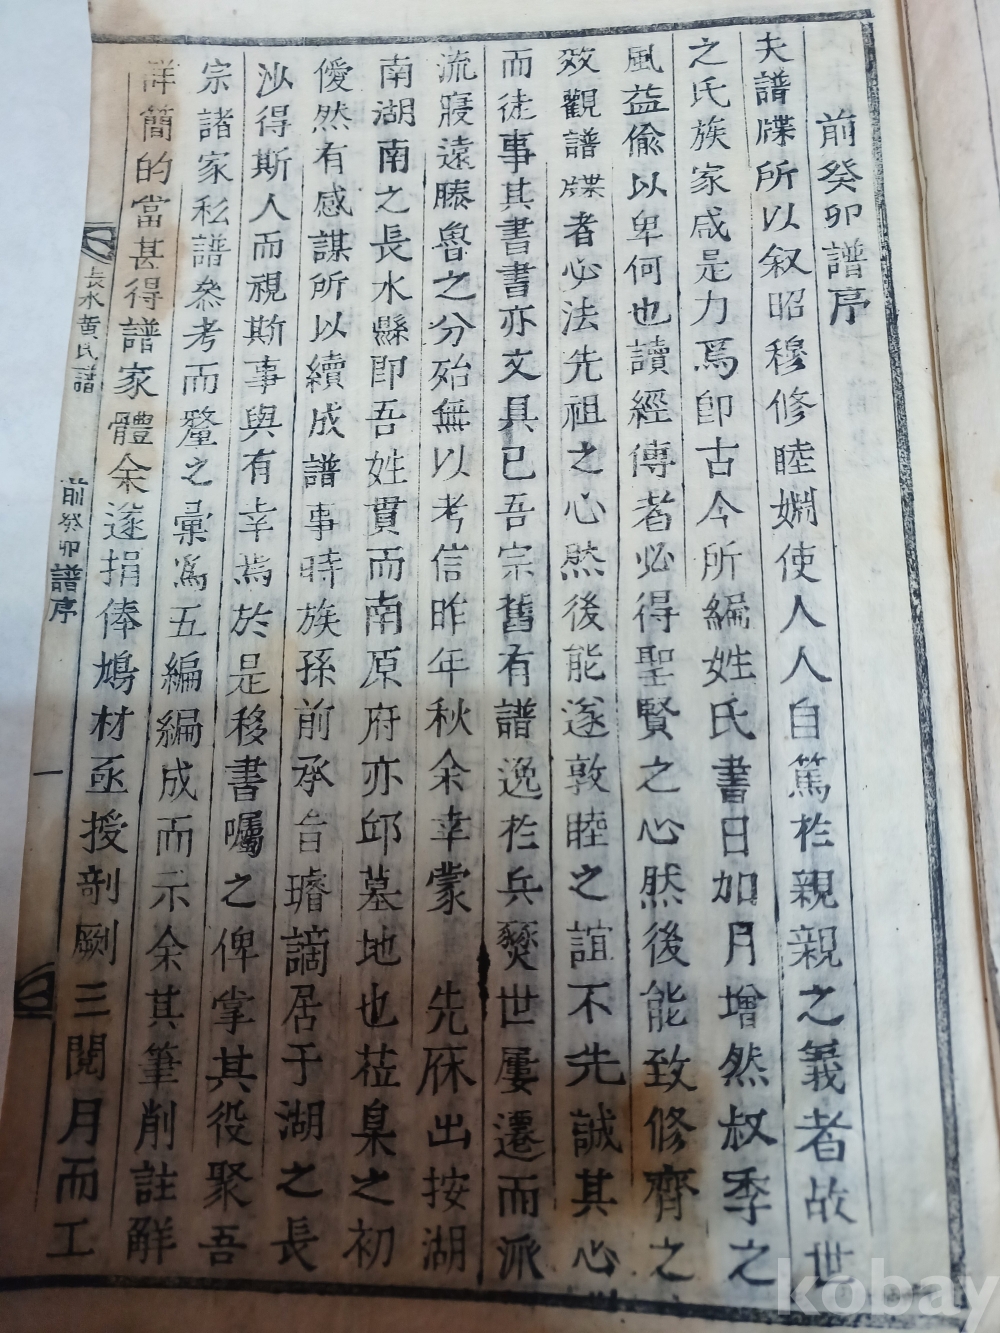 前癸卯譜序
夫譜牒所以叙昭穆修睦婣使人人自篤於親親之義者故世
之氏族家咸是力焉卽古今所編姓氏書日加月增然叔季之
風益偸以卑何也讀經傳者必得聖賢之心然後能致修齊之
效觀譜牒者必法先祖之心然後能遂敦睦之誼不先誠其心
而徒事其書書亦文具已吾宗舊有譜逸於兵燹世屢遷而派
流寢遠滕魯之分殆無以考信昨年秋余幸蒙 先庥出按湖
南湖南之長水縣卽吾姓貫而南原府亦邱墓地也莅臬之初
僾然有感謀所以續成譜事時族孫前承旨璿謫居于湖之長
沙得斯人而視斯事與有幸焉於是移書囑之俾掌其役聚吾
宗諸家私譜叅考而釐之彙爲五編編成而示余其筆削註解
詳簡的當甚得譜家體余遂捐俸鳩材亟授剞劂三閱月而工
長水黄氏譜
前癸卯譜序
一
kobay